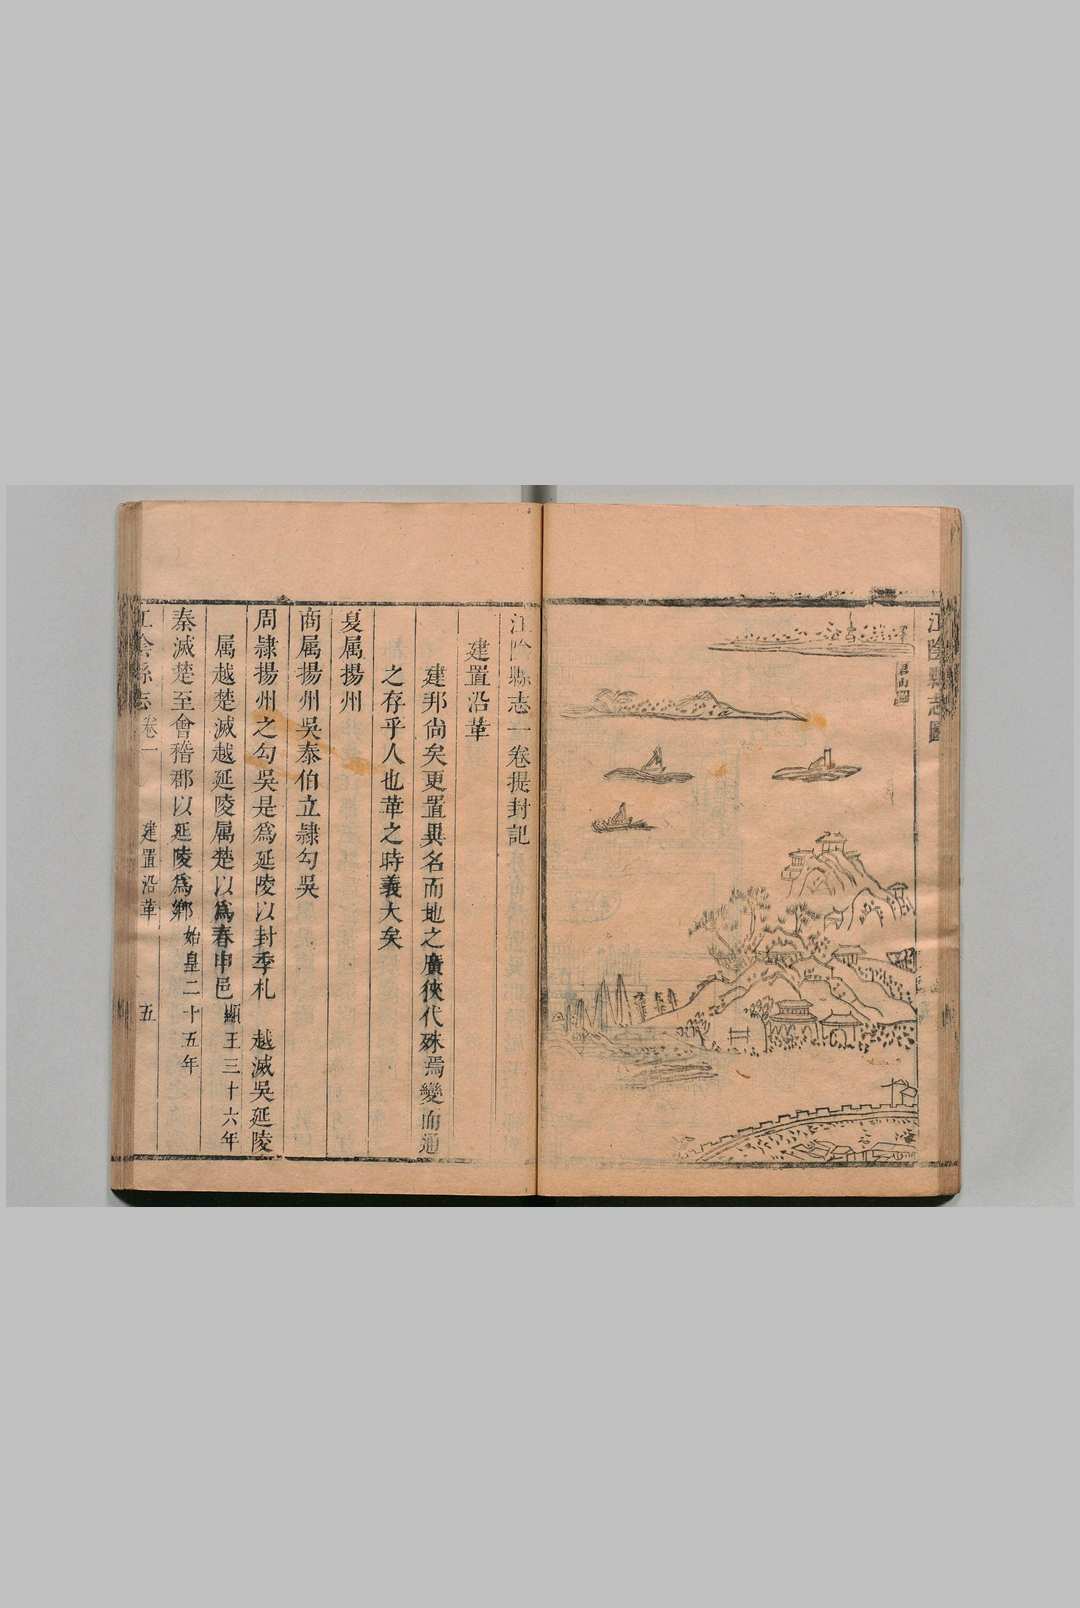 江陰縣志圖
君山圖
江陰縣志一卷提封記
建置沿革
建邦尚矣更置異名而地之廣狹代殊焉變而通
之存乎人也革之時義大矣
夏属揚州
商属揚州吳泰伯立隷勾吳
周隷揚州之勾吳是爲延陵以封季札 越滅吳延陵
属越楚滅越延陵属楚以爲春申邑 顯王三十六年
秦滅楚至會稽郡以延陵爲鄉 始皇二十五年
江陰縣志 卷一 建置沿革 五